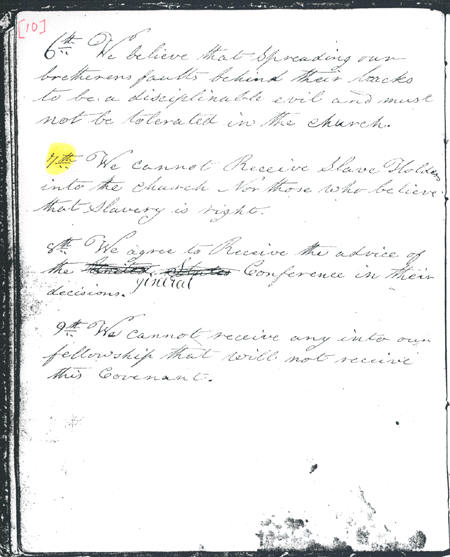 [10]
6th We believe that Spreading our
bretherens faults behind their backs
to be a disciplinable evil and must
not be tolerated in the church.
7th We cannot Receive Slave Holders
into the church Nor those who believe
that Slavery is right.
8th We agree to Receive the advice of
the United States Conference in their
gineral
decisions.
9th We cannot receive any into our
fellowship that will not receive
this Covenant.